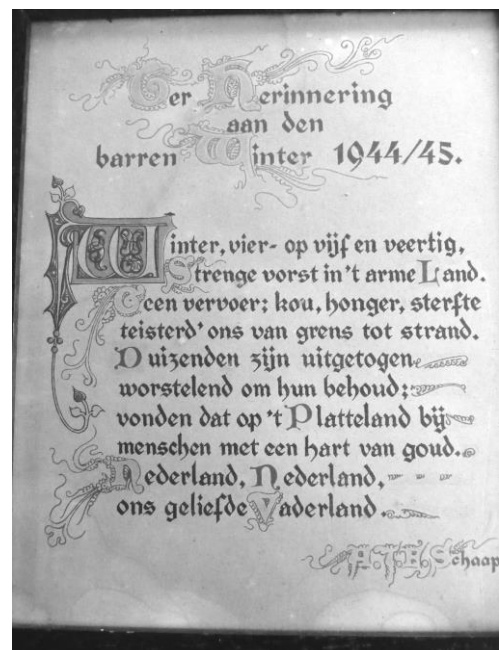 Ter Herinnering
aan den
barren Winter 1944/45.
Winter, vier- op vijf en veertig,
Strenge vorst in 't arme Land.
Geen vervoer; kou, honger, sterfte
teisterd' ons van grens tot strand.
Duizenden zijn uitgetogen
worstelend om hun behoud;
vonden dat op 't Platteland bij
menschen met een hart van goud.
Nederland, Nederland,
ons geliefde Vaderland.
A.T.B. Schaap